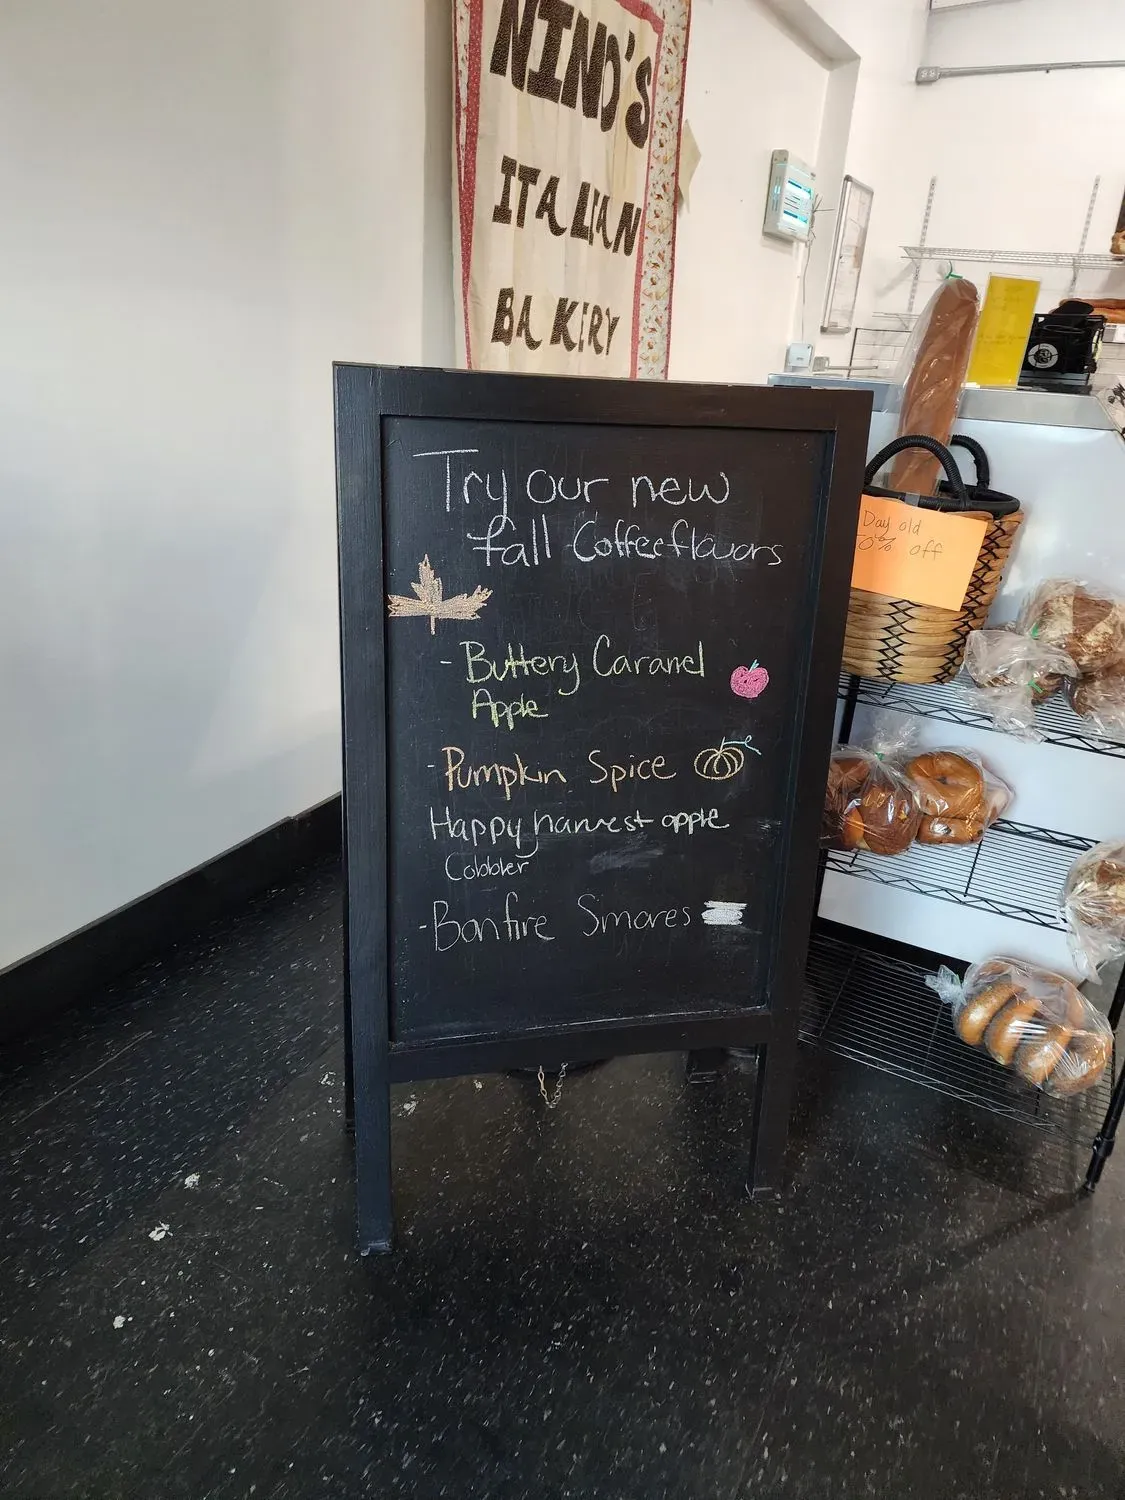 NINO'S
ITALIAN
BAKERY
Try our new
fall Coffee flavors
- Buttery Caramel
Apple
- Pumpkin Spice
Happy harvest apple
Cobbler
- Bonfire Smores
Day old
0% off